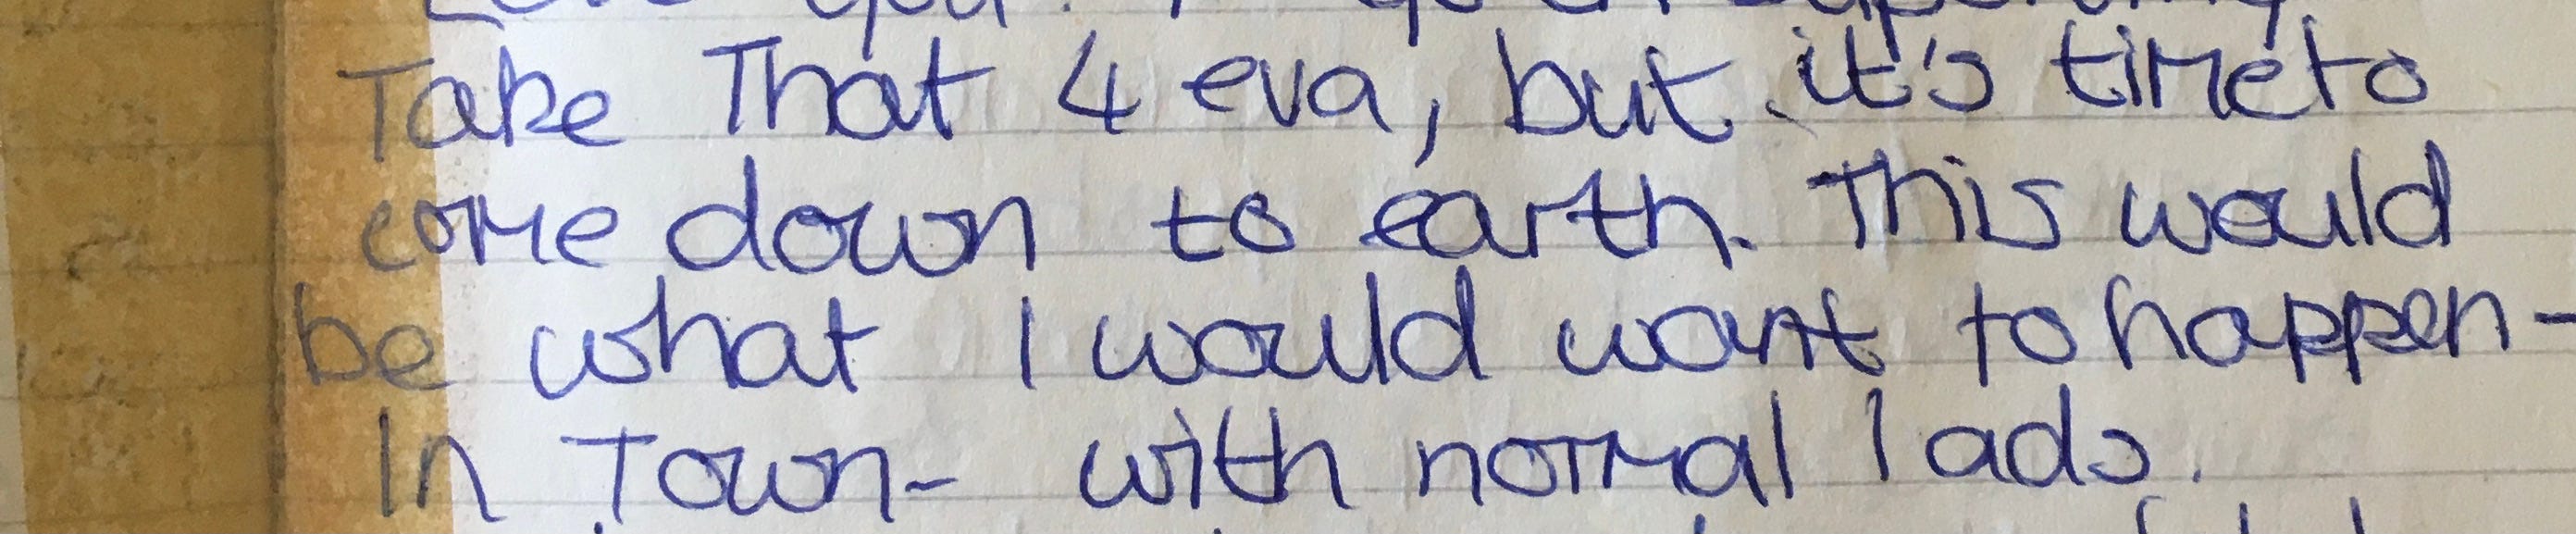 Take That 4 eva, but it's time to
come down to earth. This would
be what I would want to happen -
In Town - with normal lads.